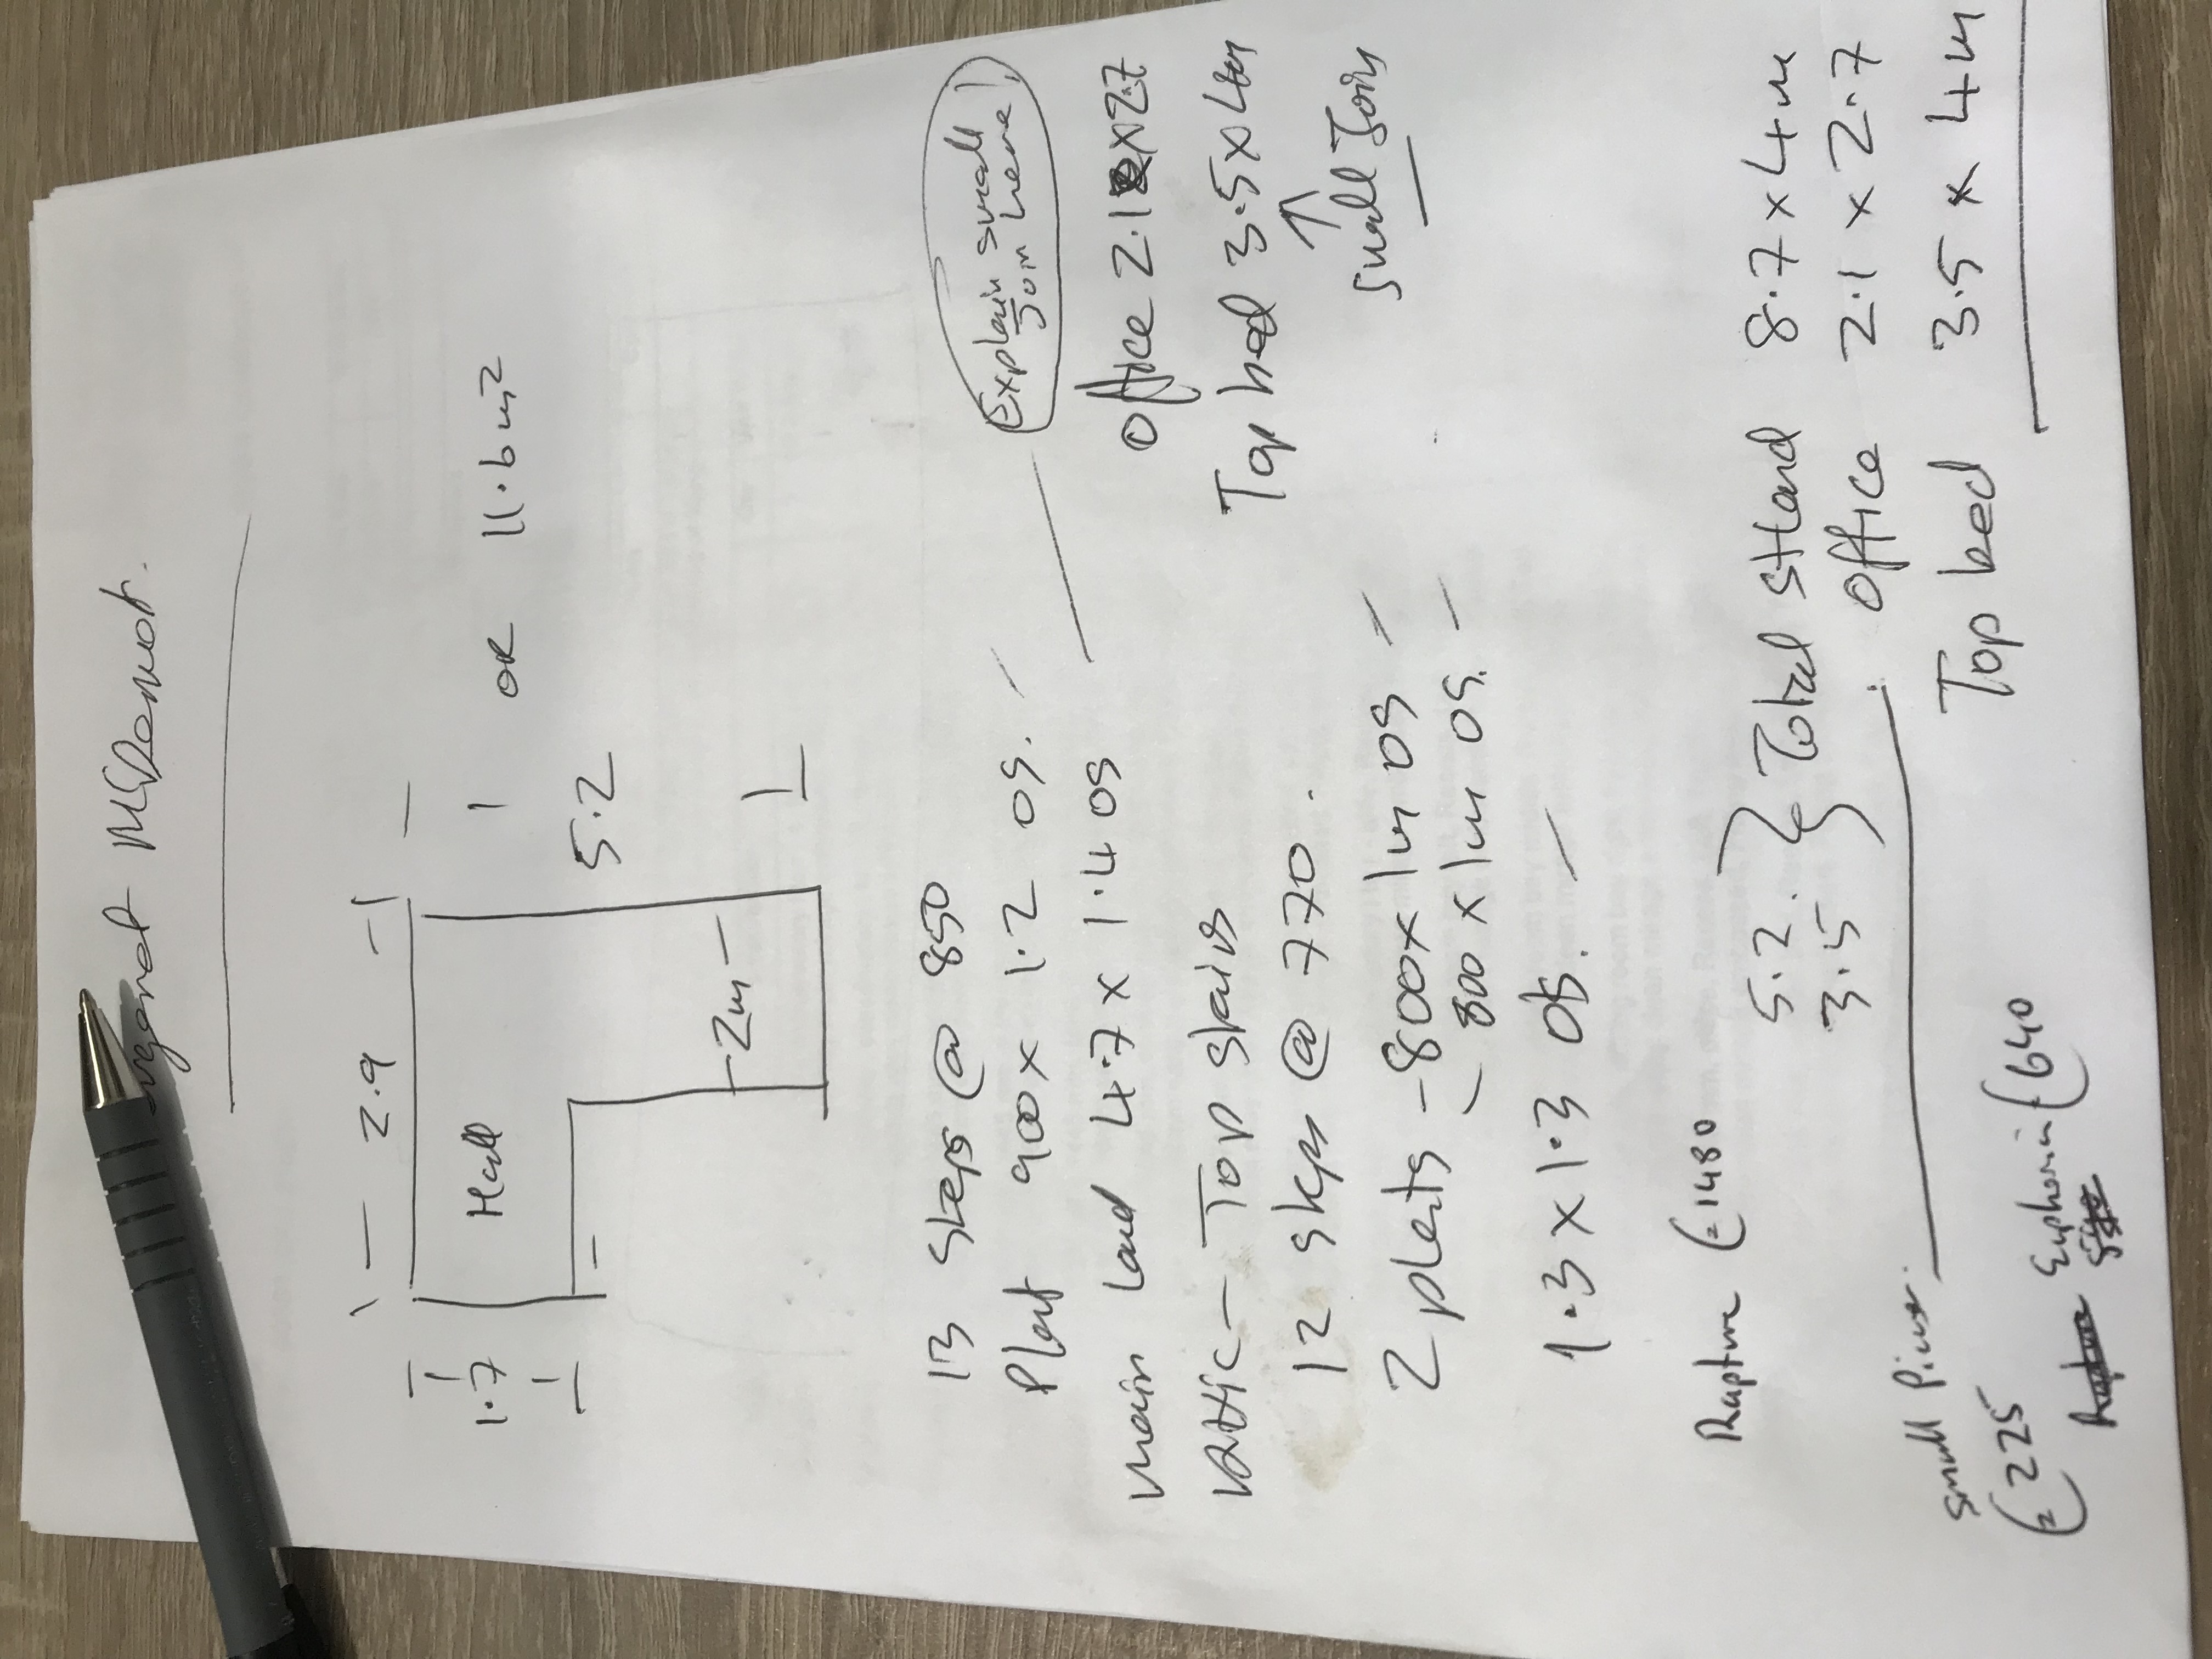 McDermot.
2.9
1.7
Hall
OR 11.6m²
5.2
2m
13 steps @ 850
Plat 900 x 1.2 os.
Main Land 4.7 x 1.4 os
Explain small
Join here
Attic - Top stairs
12 steps @ 770.
office 2.1 x 2.7
Top bed 3.5 x 4m
small Join
2 plats - 800 x 1m os
- 800 x 1m os.
1.3 x 1.3 os.
Rapture €1480
5.2.
3.5
Total stand 8.7 x 4m
office 2.1 x 2.7
Top bed 3.5 x 4m
Small
€225
Euphoria €640
Rapture